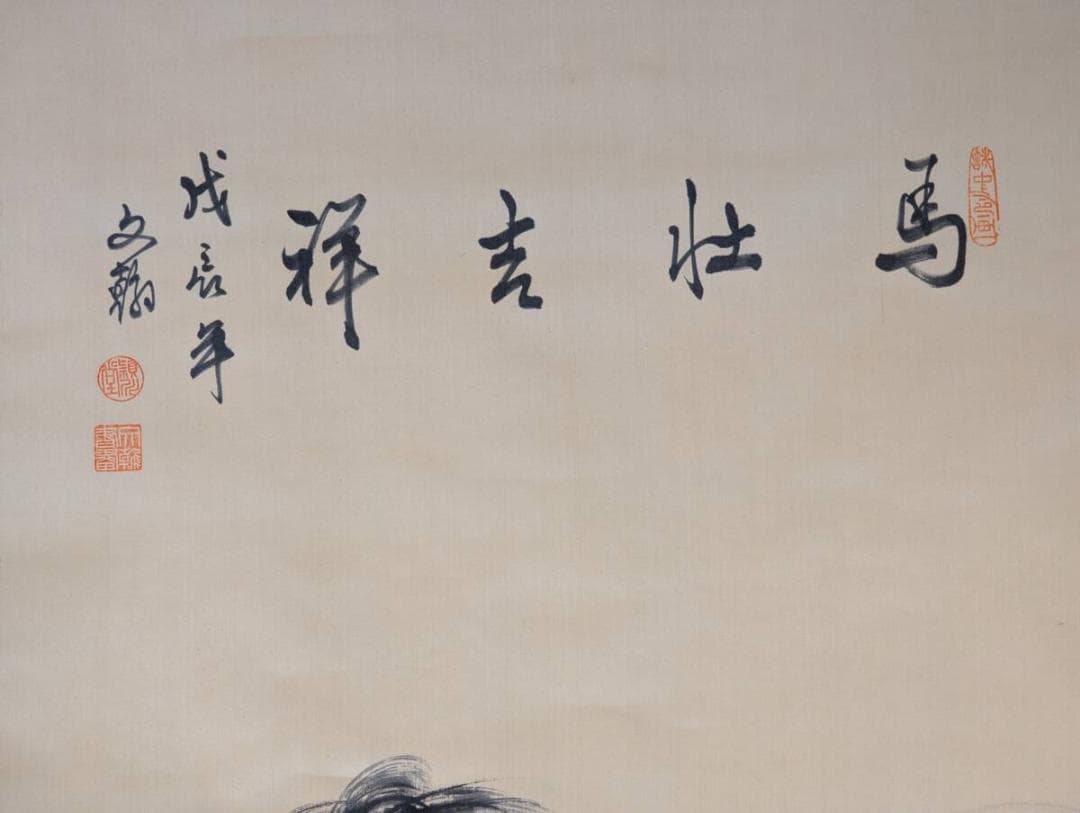 馬壮吉祥
戊辰年
文翰